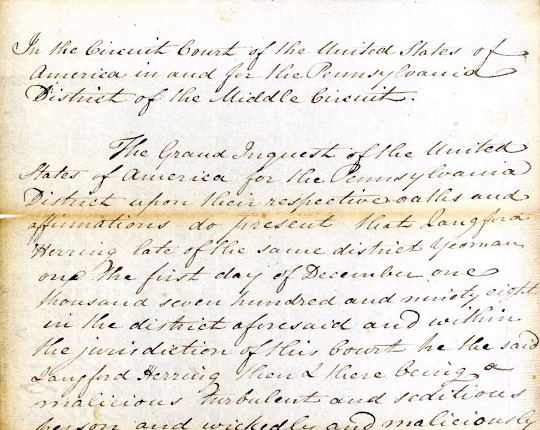 In the Circuit Court of the United States of
America in and for the Pennsylvania
District of the Middle Circuit.
The Grand Inquest of the United
States of America for the Pennsylvania
District upon their respective oaths and
affirmations do present that Langford
Herring late of the same district Yeoman
on the first day of December one
thousand seven hundred and ninety eight
in the district aforesaid and within
the jurisdiction of this Court he the said
Langford Herring then & there being a
malicious turbulent and seditious
person and wickedly and maliciously